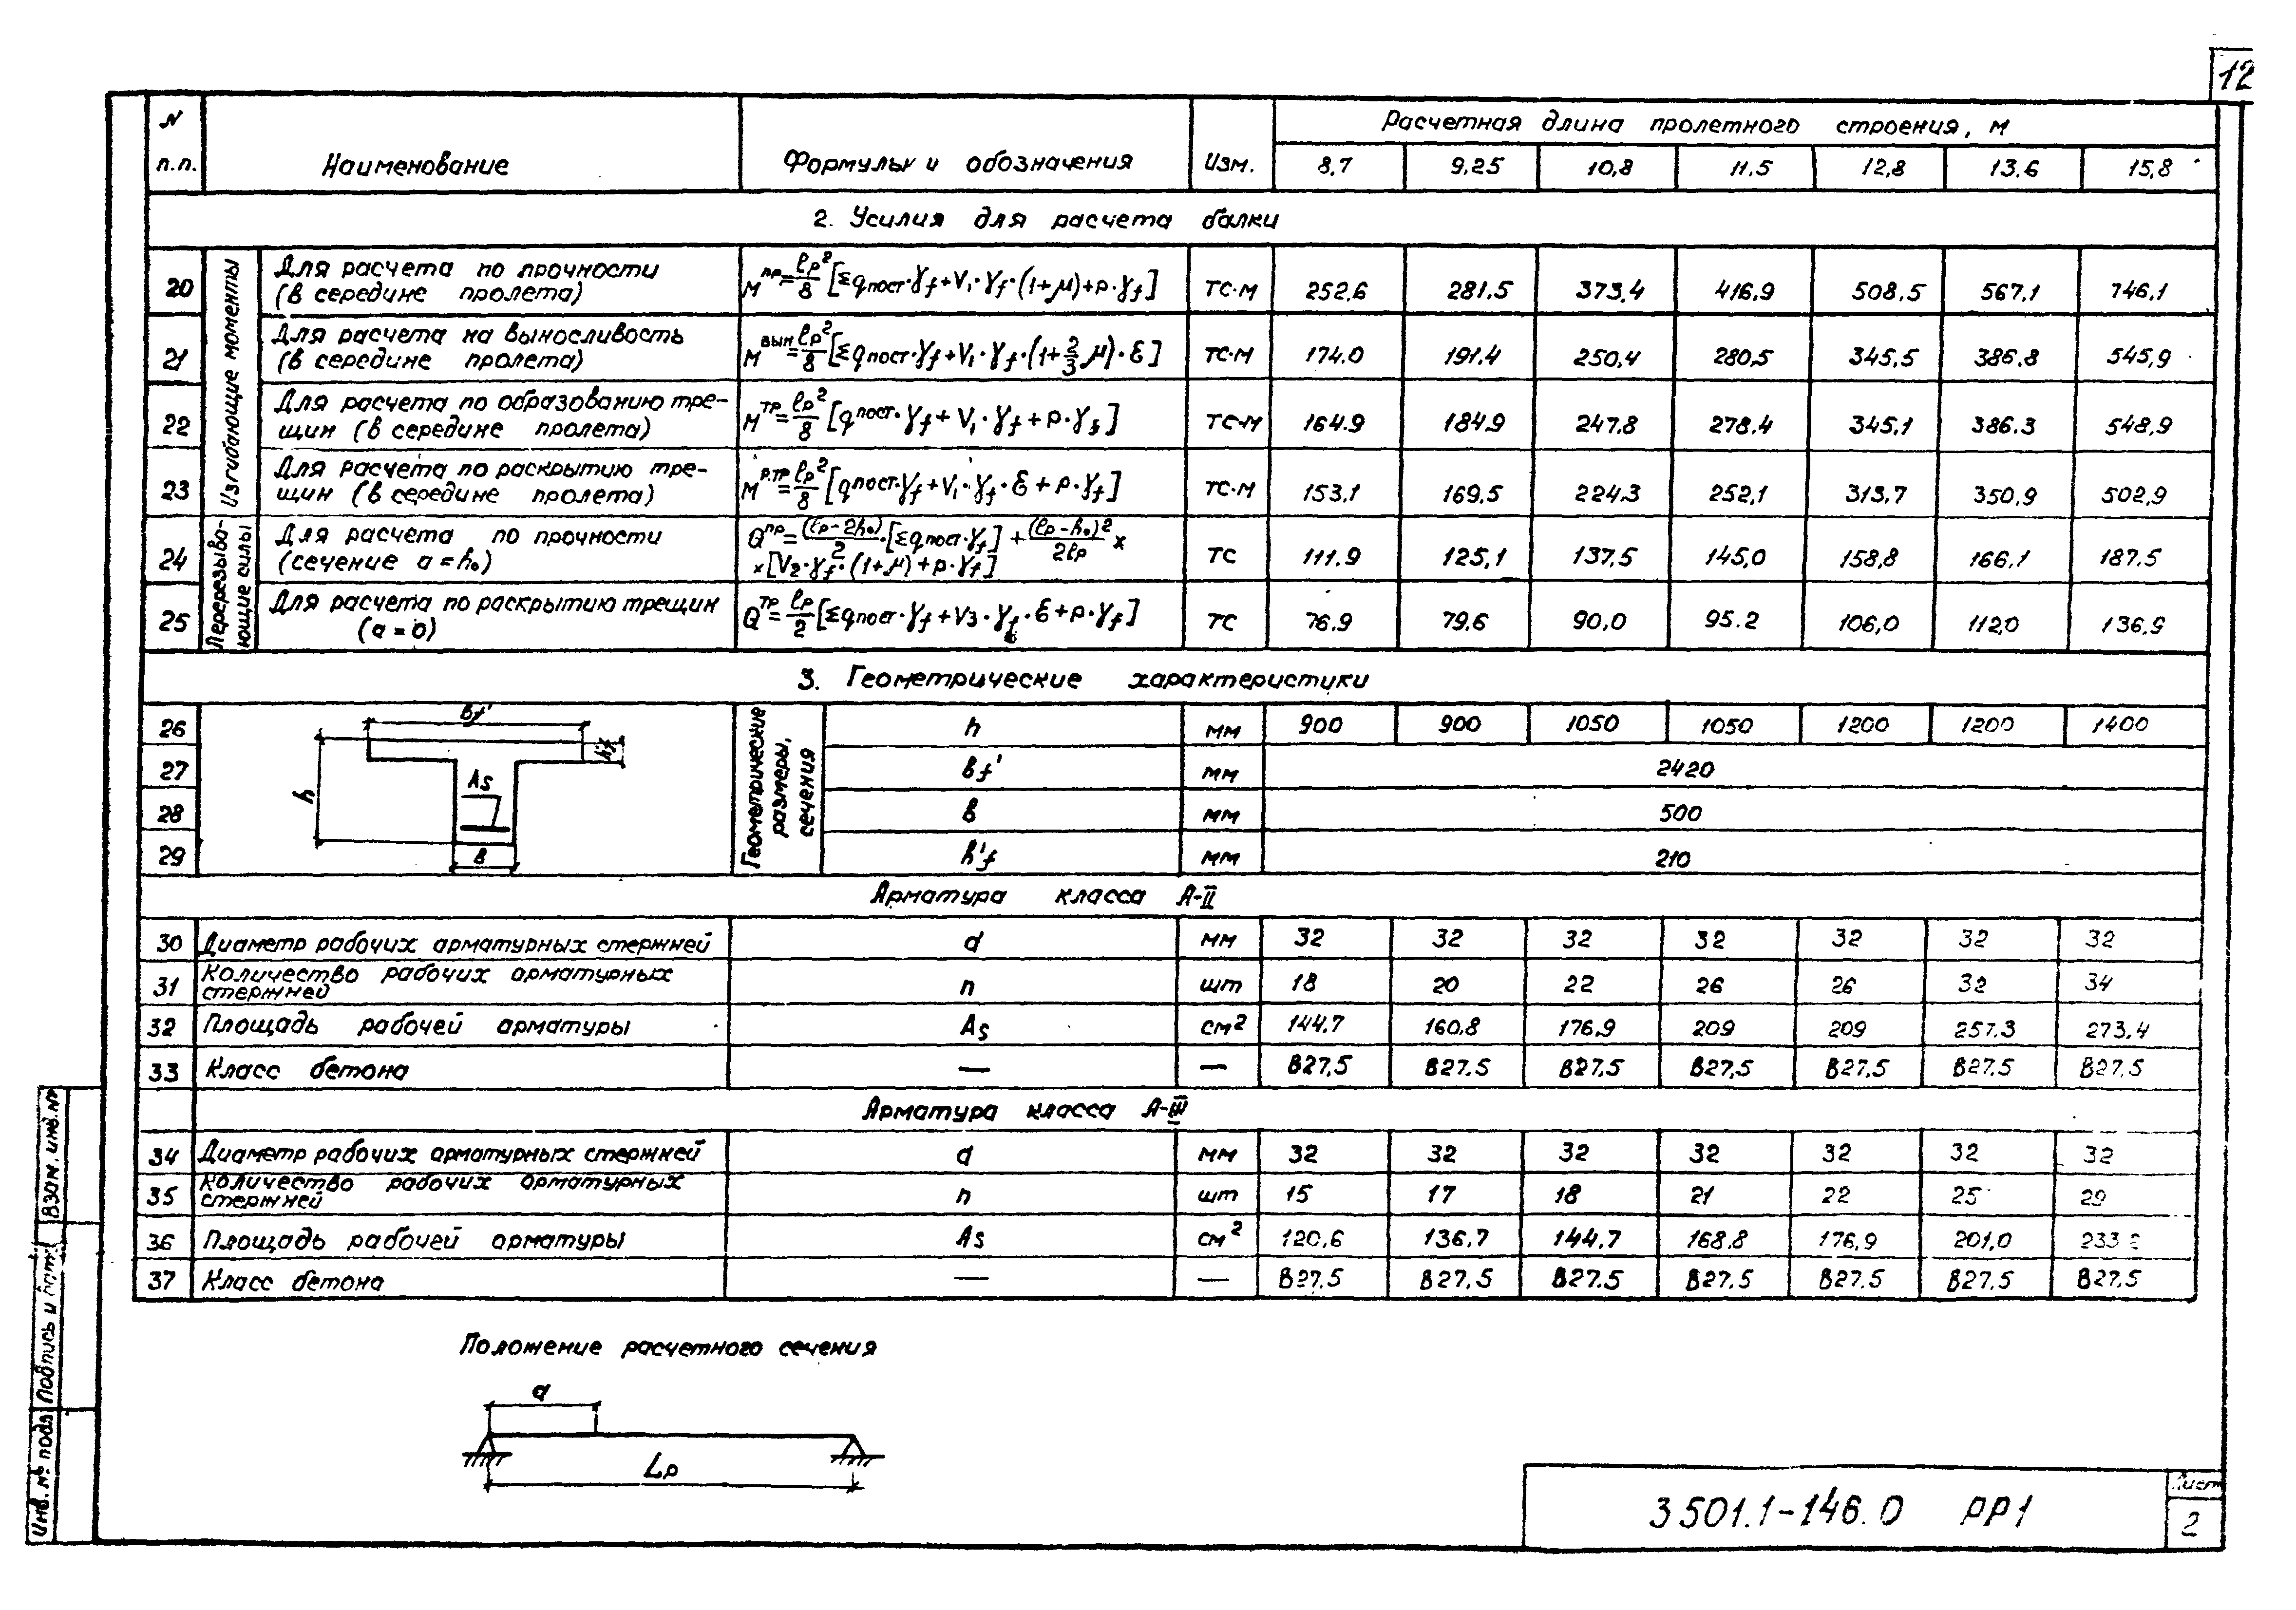 12
N п.п. Наименование Формулы и обозначения Изм. Расчетная длина пролетного строения, м
8,7 9,25 10,8 11,5 12,8 13.6 15,8
2. Усилия для расчета балки
Изгибающие моменты
20 Для расчета по прочности (в середине пролета) M^пр = lp²/8 [Σqпост·γf+V₁·γf·(1+μ)+p·γf] тс·м 252.6 281.5 373.4 416.9 508.5 567.1 746.1
21 Для расчета на выносливость (в середине пролета) M^вын = lp²/8 [Σqпост·γf+V₁·γf·(1+2/3 μ)·ε] тс·м 174.0 191.4 250,4 280,5 345,5 386.8 545,9
22 Для расчета по образованию тре-щин (в середине пролета) M^тр = lp²/8 [qпост·γf+V₁·γf+p·γf] тс·м 164.9 184.9 247.8 278.4 345,1 386.3 548,9
23 Для расчета по раскрытию тре-щин (в середине пролета) M^р.тр = lp²/8 [qпост·γf+V₁·γf·ε+p·γf] тс·м 153,1 169.5 224.3 252,1 313,7 350,9 502,9
Перерезыва-ющие силы
24 Для расчета по прочности (сечение a=h₀) Q^пр = (lp-2h₀)/2·[Σqпост·γf]+(lp-h₀)²/2lp × ×[V₂·γf·(1+μ)+p·γf] тс 111.9 125,1 137,5 145,0 158,8 166,1 187.5
25 Для расчета по раскрытию трещин (a=0) Q^тр = lp/2 [Σqпост·γf+V₃·γf·ε+p·γf] тс 76.9 79.6 90,0 95.2 106,0 112,0 136,9
3. Геометрические характеристики
bf'
h'f
h
As
в
Геометрические размеры, сечения
26 h мм 900 900 1050 1050 1200 1200 1400
27 bf' мм 2420
28 в мм 500
29 h'f мм 210
Арматура класса А-II
30 Диаметр рабочих арматурных стержней d мм 32 32 32 32 32 32 32
31 Количество рабочих арматурных стержней n шт 18 20 22 26 26 32 34
32 Площадь рабочей арматуры As см² 144.7 160,8 176,9 209 209 257.3 273,4
33 Класс бетона — — В27.5 В27.5 В27.5 В27,5 В27,5 В27.5 В27,5
Арматура класса А-III
34 Диаметр рабочих арматурных стержней d мм 32 32 32 32 32 32 32
35 Количество рабочих арматурных стержней n шт 15 17 18 21 22 25 29
36 Площадь рабочей арматуры As см² 120,6 136.7 144.7 168.8 176,9 201,0
37 Класс бетона — — В27.5 В27.5 В27.5 В27.5 В27.5 В27.5 В27.5
Положение расчетного сечения
a
Lp
Взам. инв.№
Подпись и дата
Инв. № подл
3 501.1-146.0 РР1
Лист
2